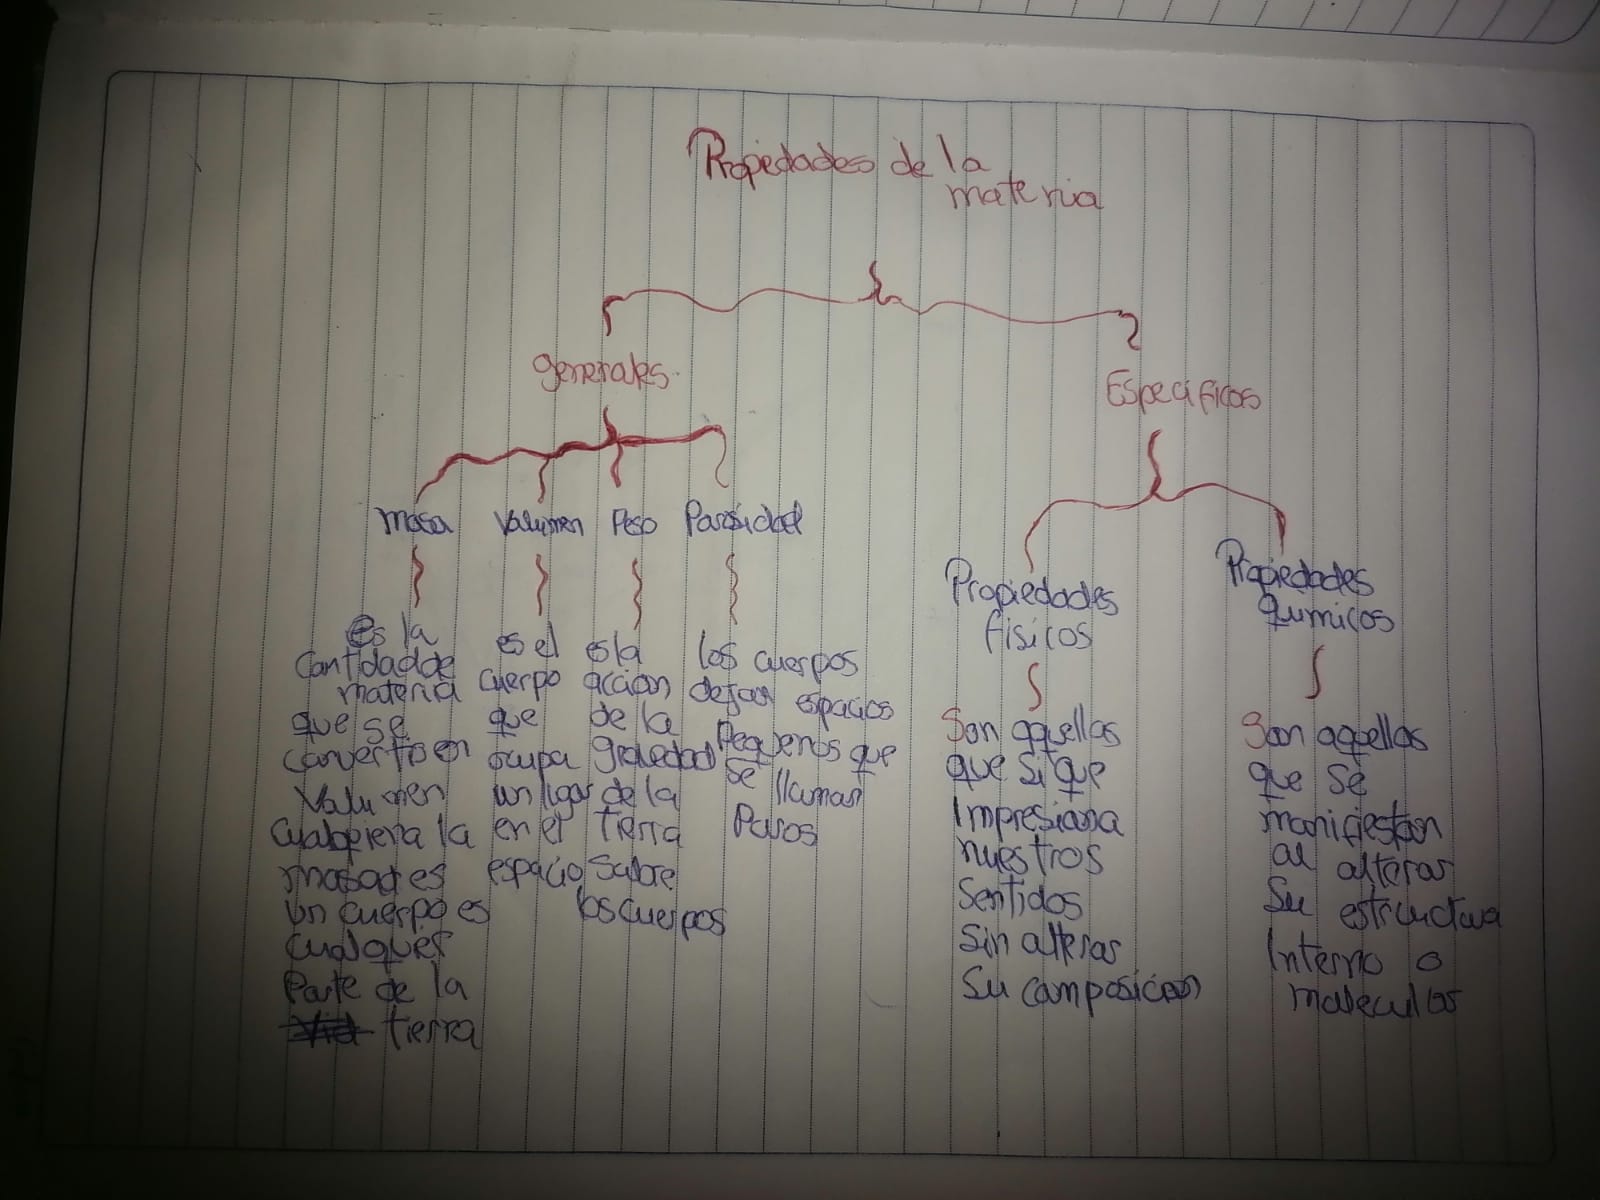 Propiedades de la
materia
Generales
Especificos
masa
Volumen
Peso
Porosidad
es la
cantidad de
materia
que se
convertio en
Volumen
cualquiera la
masa es
un cuerpo es
cualquier
Parte de la
tierra
es el
cuerpo
que
ocupa
un lugar
en el
espacio
es la
acción
de la
gravedad
de la
tierra
sobre
los cuerpos
los cuerpos
dejan espacios
Pequenos que
se llaman
Poros
Propiedades
fisicos
Son aquellas
que si que
Impresiona
nuestros
Sentidos
Sin alterar
Su composicion
Propiedades
quimicos
Son aquellas
que se
manifiestan
al alterar
Su estructura
Interno o
molecular